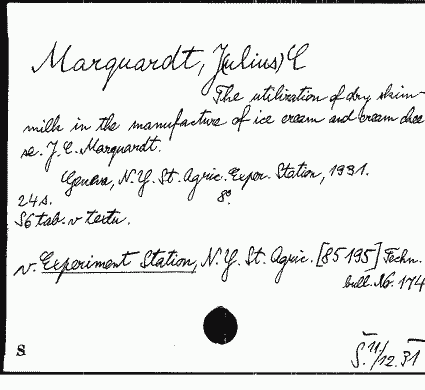 Marquardt, J(ulius) C
The utilization of dry skim-
milk in the manufacture of ice cream and cream chee
se. J. C. Marquardt.
Geneva, N.Y. St. Agric. Exper. Station, 1931.
24 s. 8º.
S6 tab. v textu.
v. Experiment Station, N.Y. St. Agric. [85195] Techn.
bull. No. 174
8
S. 11/12.31